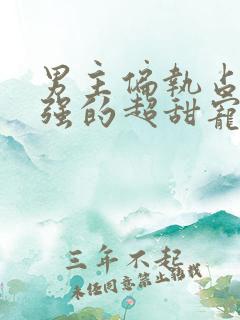 男主偏执占
强的超甜宠
三年不起
未经同意禁止转载